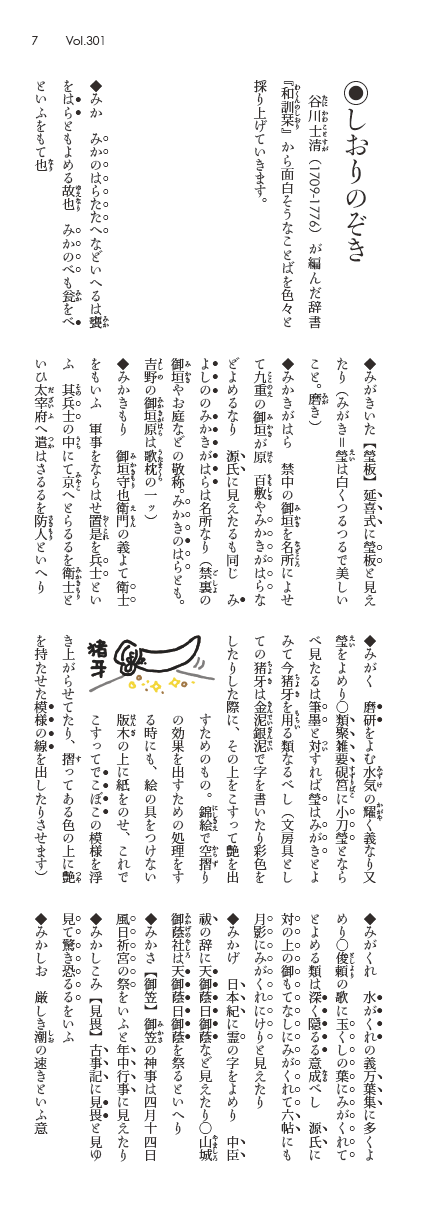 7 Vol.301
◉しおりのぞき
谷川士清（1709-1776）が編んだ辞書
『和訓栞』から面白そうなことばを色々と
採り上げていきます。
◆みか　みかのはらたたへなどいへるは甕
をはらともよめる故也　みかのべも瓮をべ
といふをもて也
◆みがきいた【瑩板】延喜式に瑩板と見え
たり（みがき＝瑩は白くつるつるで美しい
こと。磨き）
◆みかきがはら　禁中の御垣を名所によせ
て九重の御垣が原　百敷やみかきがはらな
どよめるなり　源氏に見えたるも同じ　み
よしののみかきがはらは名所なり（禁裏の
御垣やお庭などの敬称。みかきのはらとも。
吉野の御垣原は歌枕の一ッ）
◆みかきもり　御垣守也衛門の義よて衛士
をもいふ　軍事をならはせ置是を兵士とい
ふ　其兵士の中にて京へとらるるを衛士と
いひ太宰府へ遣はさるるを防人といへり
◆みがく　磨研をよむ水気の耀く義なり又
瑩をよめり〇類聚雑要硯筥に小刀瑩となら
べ見たるは筆墨と対すれば瑩はみがきとよ
みて今猪牙を用る類なるべし（文房具とし
ての猪牙は金泥銀泥で字を書いたり彩色を
したりした際に、その上をこすって艶を出
すためのもの。錦絵で空摺り
の効果を出すための処理をす
る時にも、絵の具をつけない
版木の上に紙をのせ、これで
こすってでこぼこの模様を浮
き上がらせてたり、摺ってある色の上に艶
を持たせた模様の線を出したりさせます）
猪牙
◆みがくれ　水がくれの義万葉集に多くよ
めり〇俊頼の歌に玉くしの葉にみがくれて
とよめる類は深く隠るる意成べし　源氏に
対の上の御もてなしにみがくれて六帖にも
月影にみがくれにけりと見えたり
◆みかげ　日本紀に霊の字をよめり　中臣
祓の辞に天御蔭日御蔭など見えたり〇山城
御蔭社は天御蔭日御蔭を祭るといへり
◆みかさ【御笠】御笠の神事は四月十四日
風日祈宮の祭をいふと年中行事に見えたり
◆みかしこみ【見畏】古事記に見畏と見ゆ
見て驚き恐るるをいふ
◆みかしお　厳しき潮の速きといふ意